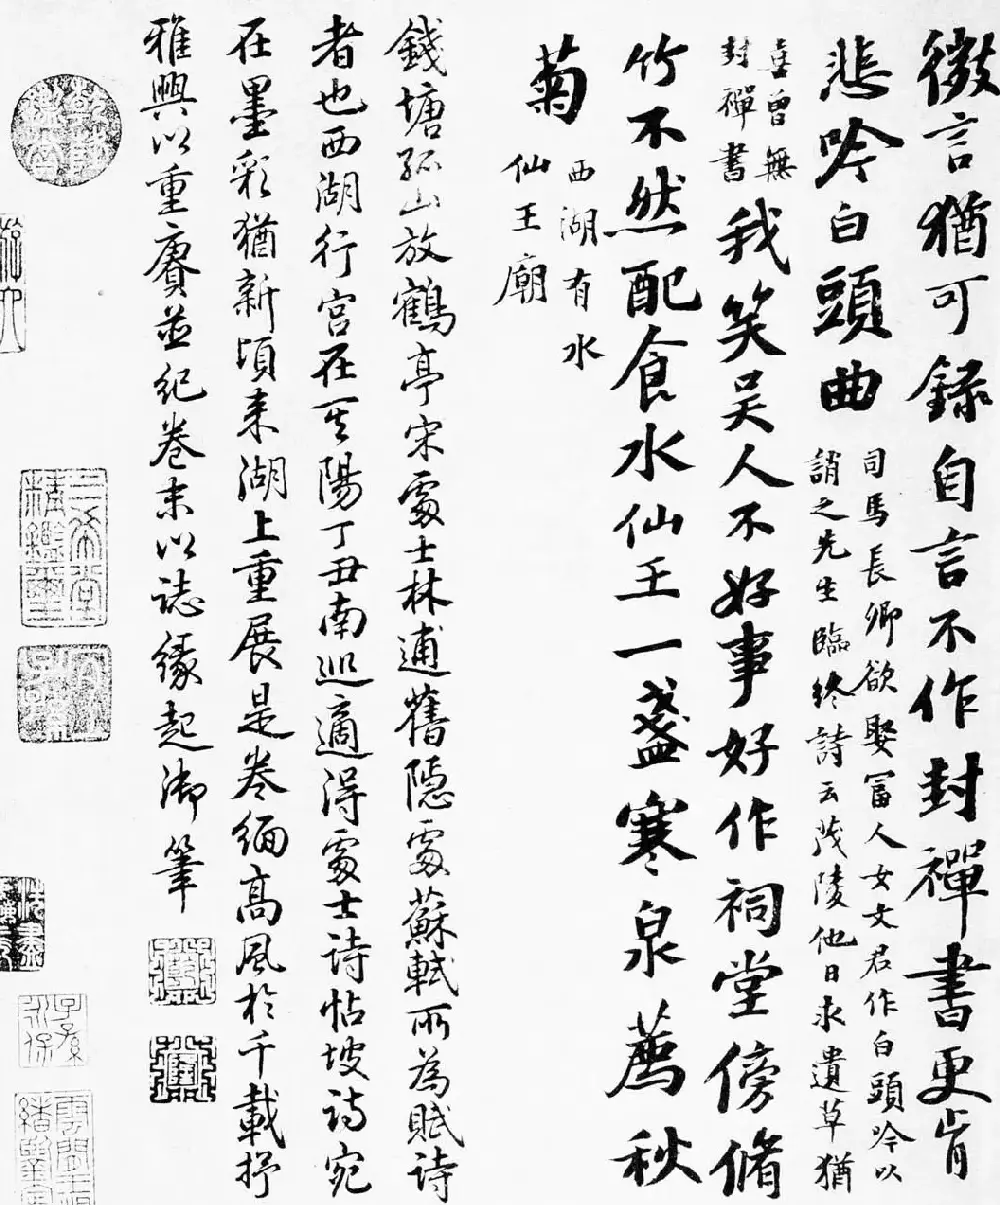 微言猶可錄自言不作封禪書更肯
悲吟白頭曲
司馬長卿欲娶富人女文君作白頭吟以
誚之先生臨終詩云茂陵他日求遺草猶
喜曾無
封禪書
我笑吳人不好事好作祠堂傍脩
竹不然配食水仙王一盞寒泉薦秋
菊
西湖有水
仙王廟
錢塘孤山放鶴亭宋處士林逋舊隱處蘇軾所為賦詩
者也西湖行宮在其陽丁丑南巡適得處士詩帖坡詩宛
在墨彩猶新頃來湖上重展是卷緬高風於千載抒
雅興以重賡並紀卷末以誌緣起御筆
三希堂
精鑑璽
宜子孫
子孫
永保